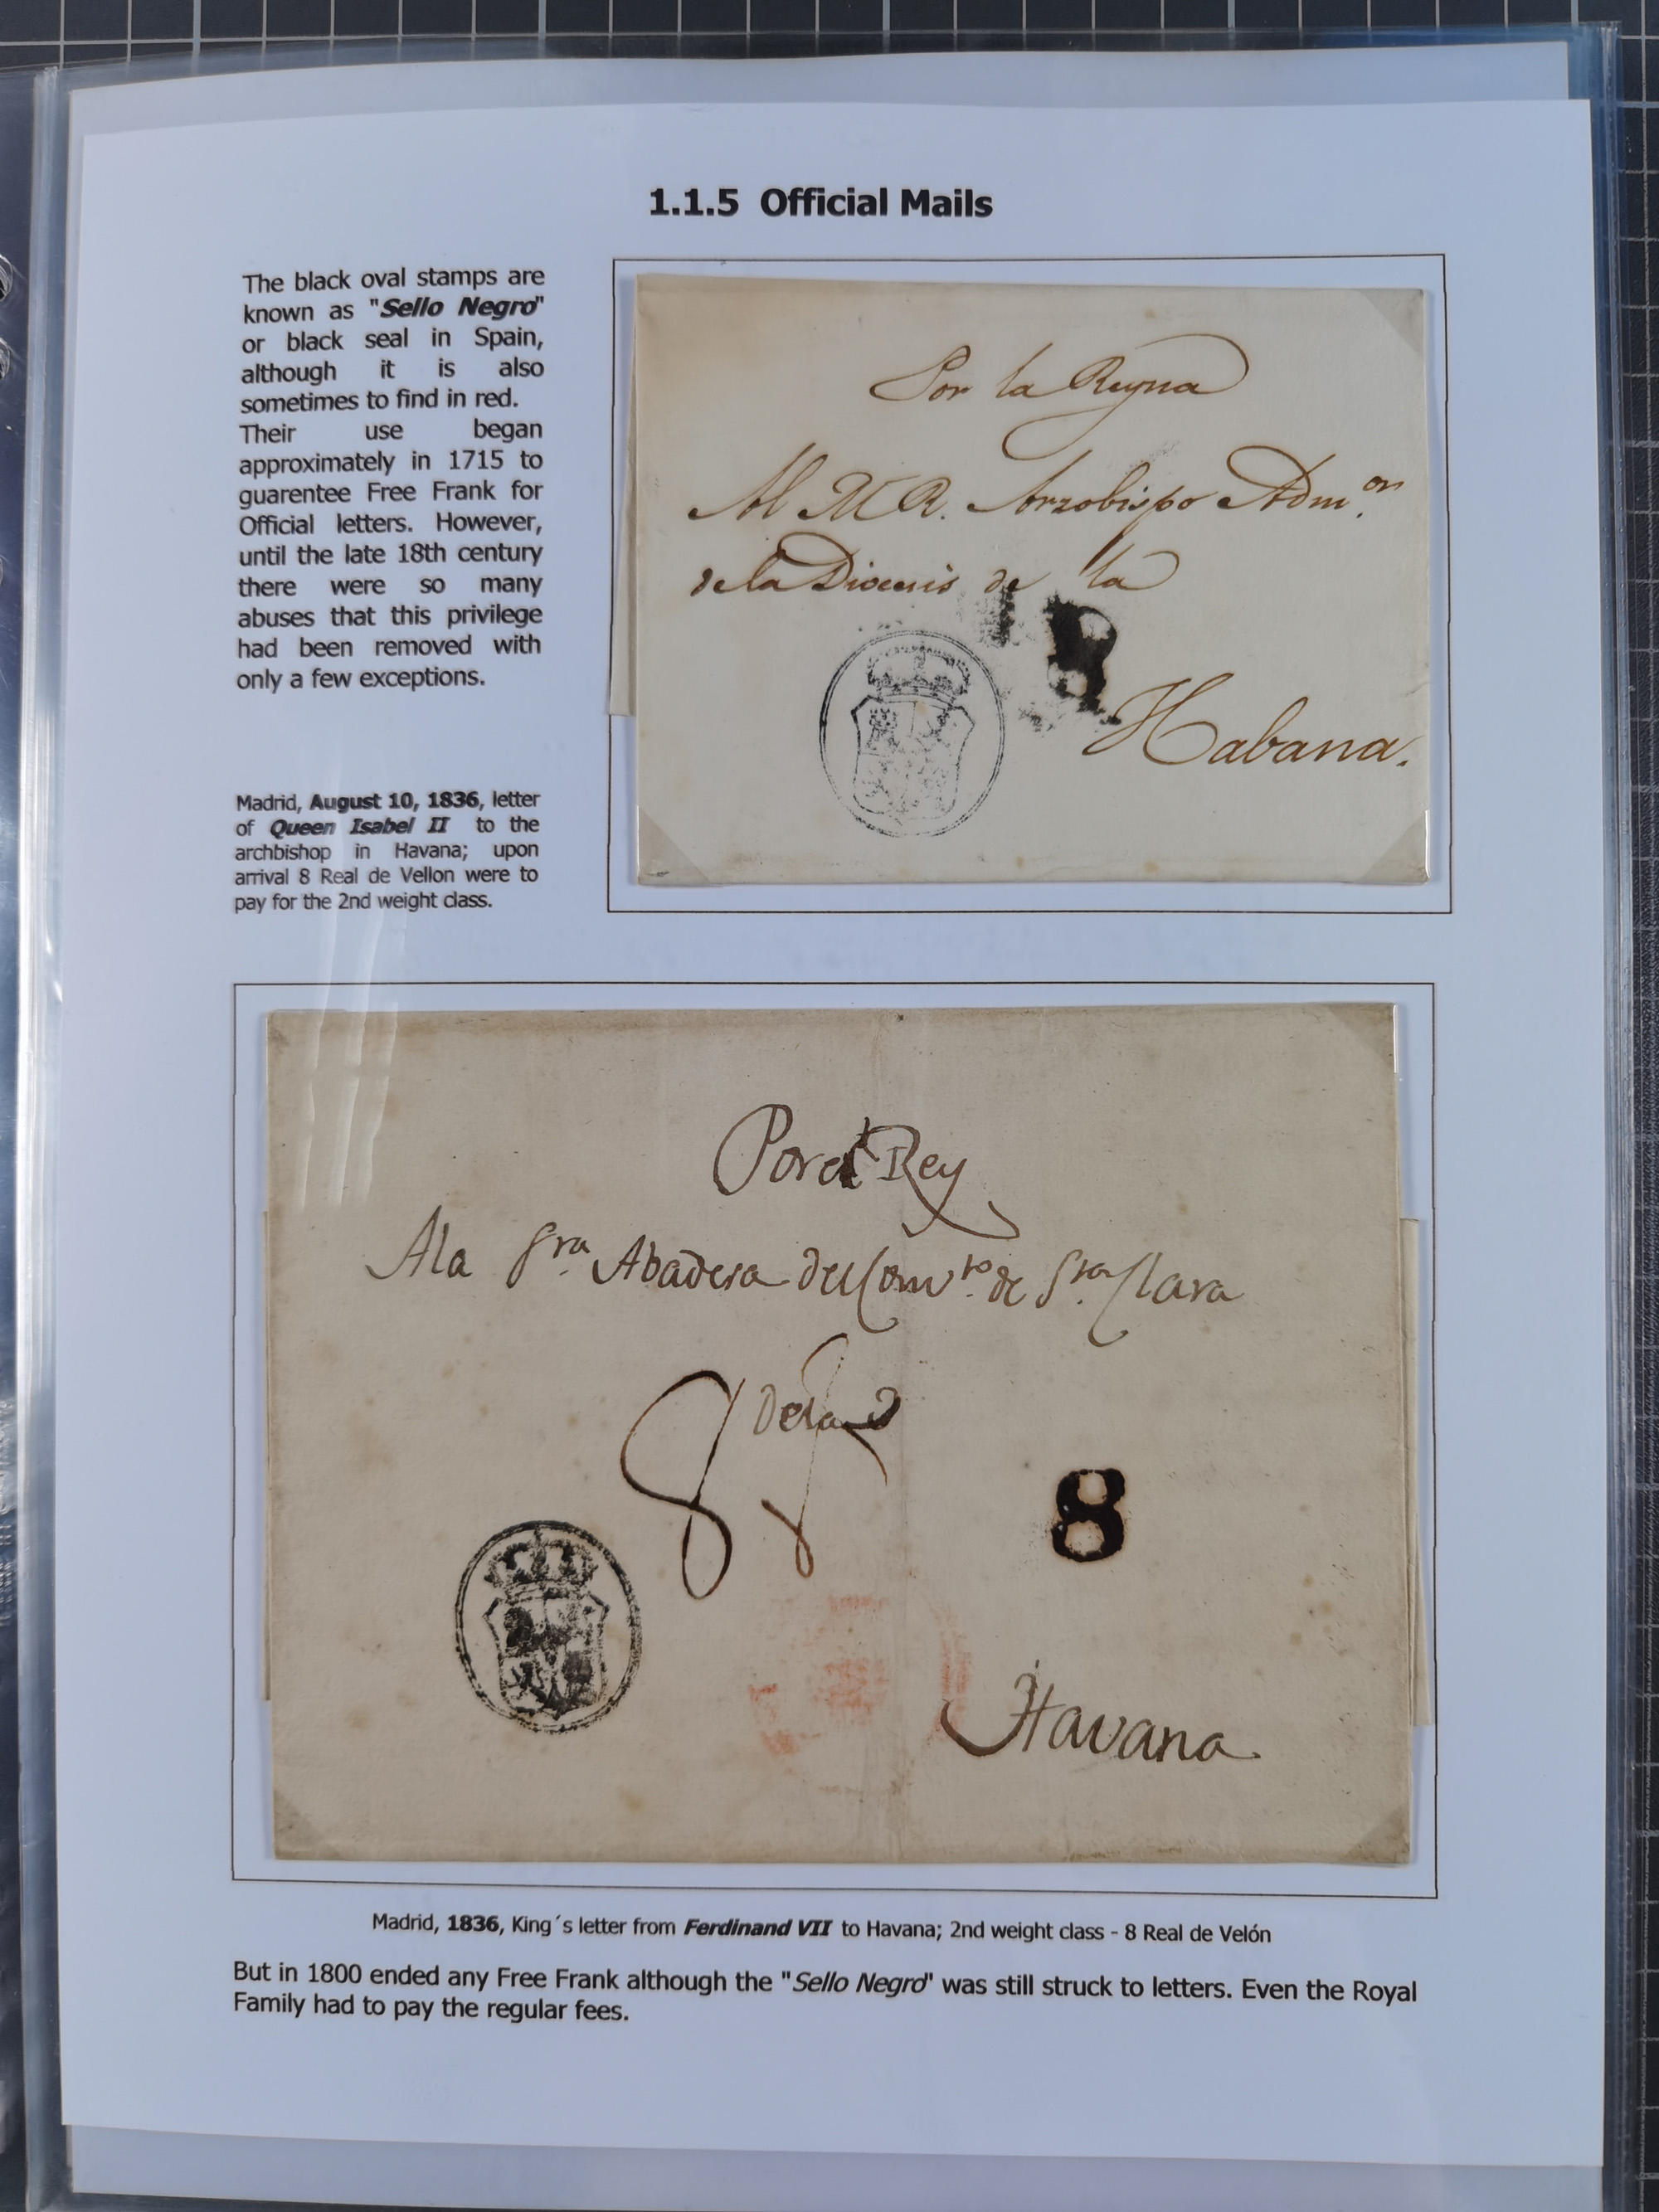 1.1.5 Official Mails
The black oval stamps are
known as "Sello Negro"
or black seal in Spain,
although it is also
sometimes to find in red.
Their use began
approximately in 1715 to
guarentee Free Frank for
Official letters. However,
until the late 18th century
there were so many
abuses that this privilege
had been removed with
only a few exceptions.
Madrid, August 10, 1836, letter
of Queen Isabel II to the
archbishop in Havana; upon
arrival 8 Real de Vellon were to
pay for the 2nd weight class.
Por la Reyna
Al M R. Arzobispo Adm.on
de la Diocesis de la
8
Habana.
Por el Rey
A la Sra. Abadesa del Conv.to de Sta. Clara
de la
8
8
Havana
Madrid, 1836, King´s letter from Ferdinand VII to Havana; 2nd weight class - 8 Real de Velón
But in 1800 ended any Free Frank although the "Sello Negro" was still struck to letters. Even the Royal
Family had to pay the regular fees.